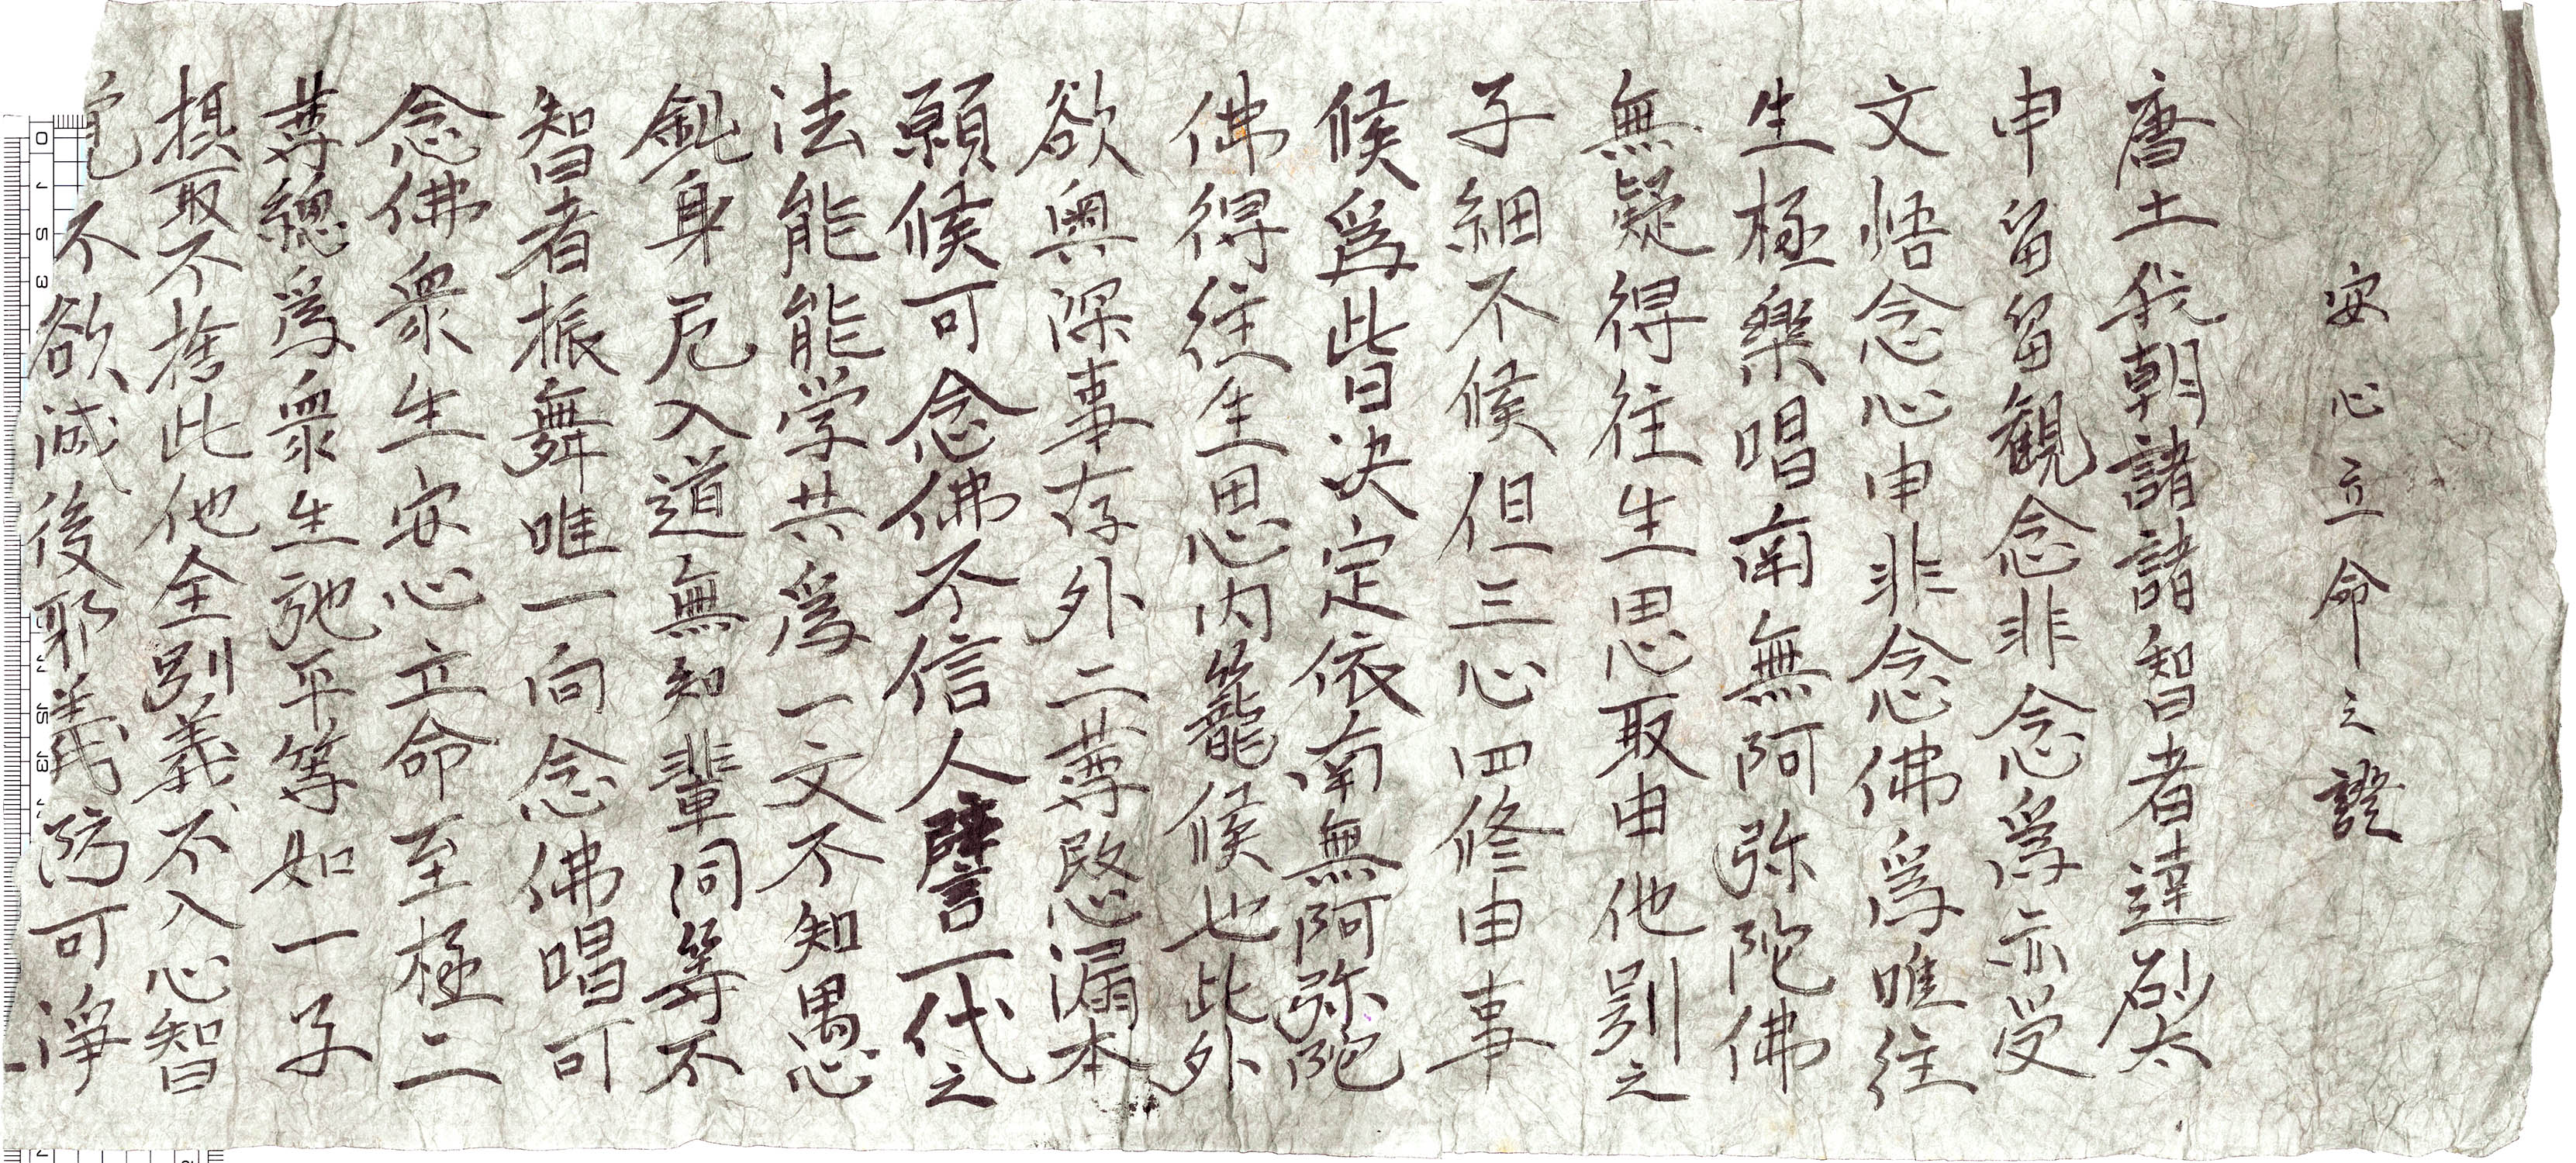 安心立命之證
唐土我朝諸諸智者達砂太
申留留観念非念爲示受
文悟念心申非念佛爲唯往
生極樂唱南無阿弥陀佛
無疑得往生思取申他別之
子細不候但三心四修申事
候爲皆決定依南無阿弥陀
佛得往生思内籠候也此外
欲奥深事存外二尊愍漏本
願候可念佛不信人譬一代之
法能能学共爲一文不知愚
鈍身尼入道無知輩同等不
智者振舞唯一向念佛唱可
念佛衆生安心立命至極二
尊總爲衆生弛平等如一子
摂取不捨此他全別義不入心智
不欲滅後邪義防可淨